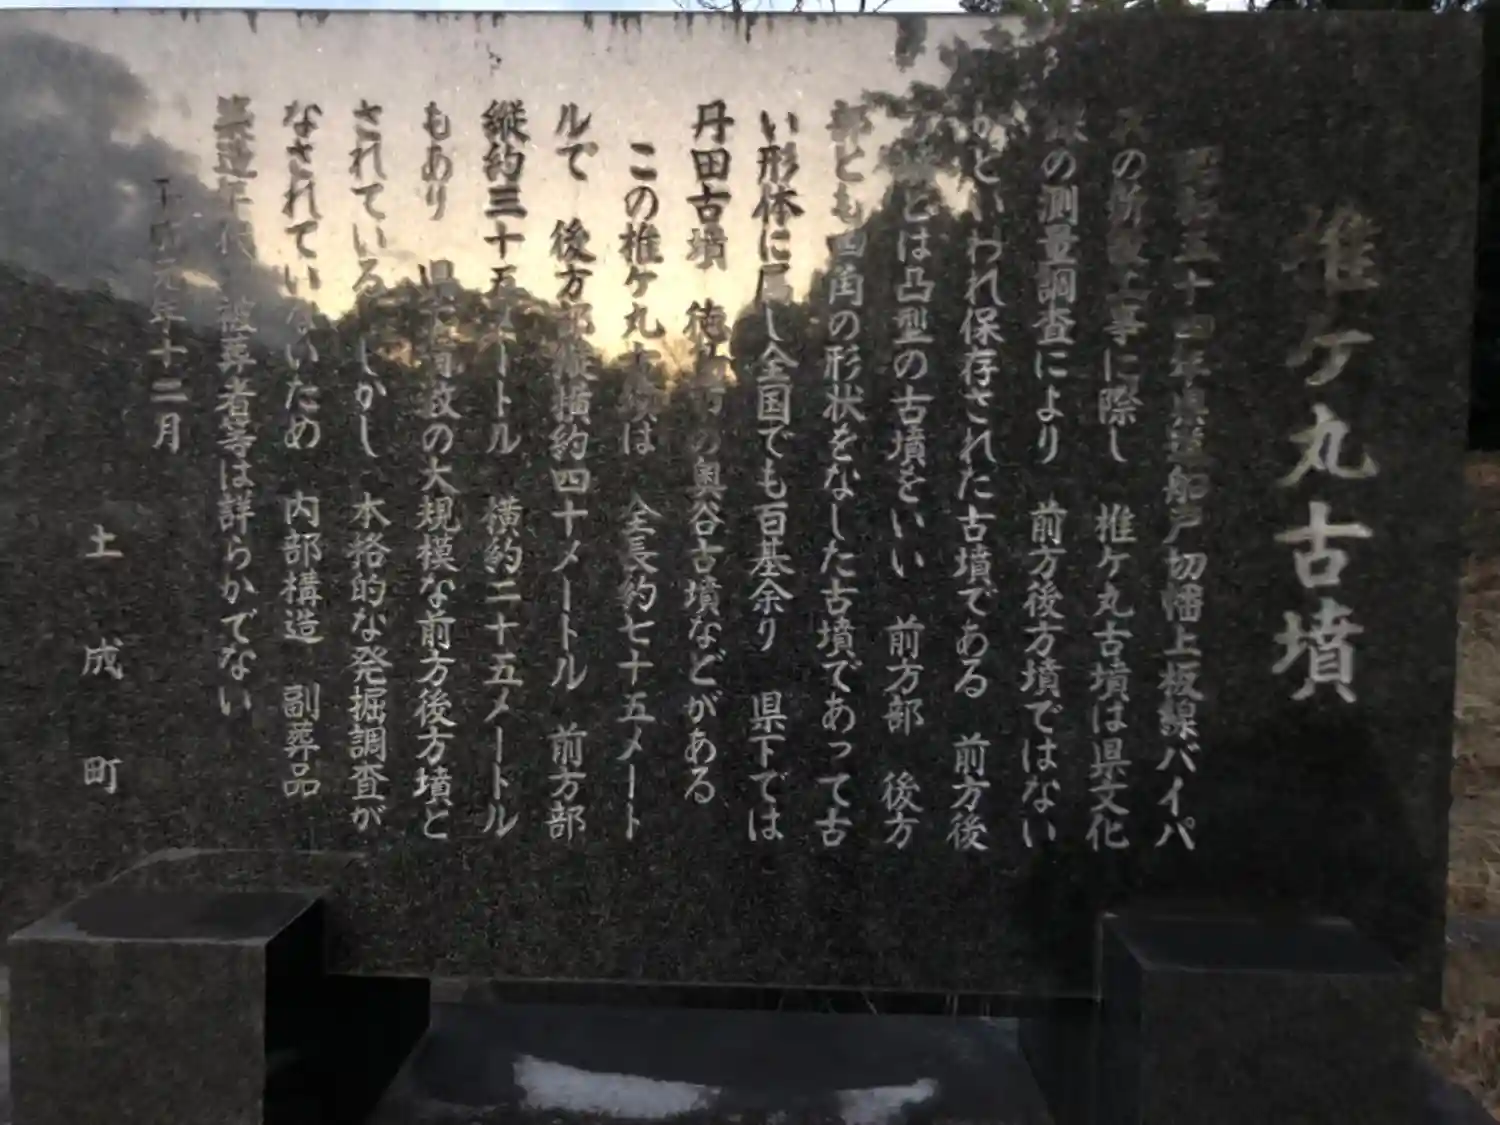 椎ケ丸古墳
昭和五十四年県道船戸切幡上板線バイパ
スの新設工事に際し 椎ケ丸古墳は県文化
の測量調査により 前方後方墳ではない
かといわれ保存された古墳である 前方後
とは凸型の古墳をいい 前方部 後方
部とも四角の形状をなした古墳であって古
い形体に属し全国でも百基余り 県下では
丹田古墳 徳島市の奥谷古墳などがある
この椎ケ丸古墳は 全長約七十五メート
ルで 後方部縦横約四十メートル 前方部
縦約三十五メートル 横約二十五メートル
もあり 県下有数の大規模な前方後方墳と
されている しかし 本格的な発掘調査が
なされていないため 内部構造 副葬品
築造年代 被葬者等は詳らかでない
平成元年十二月
土成町